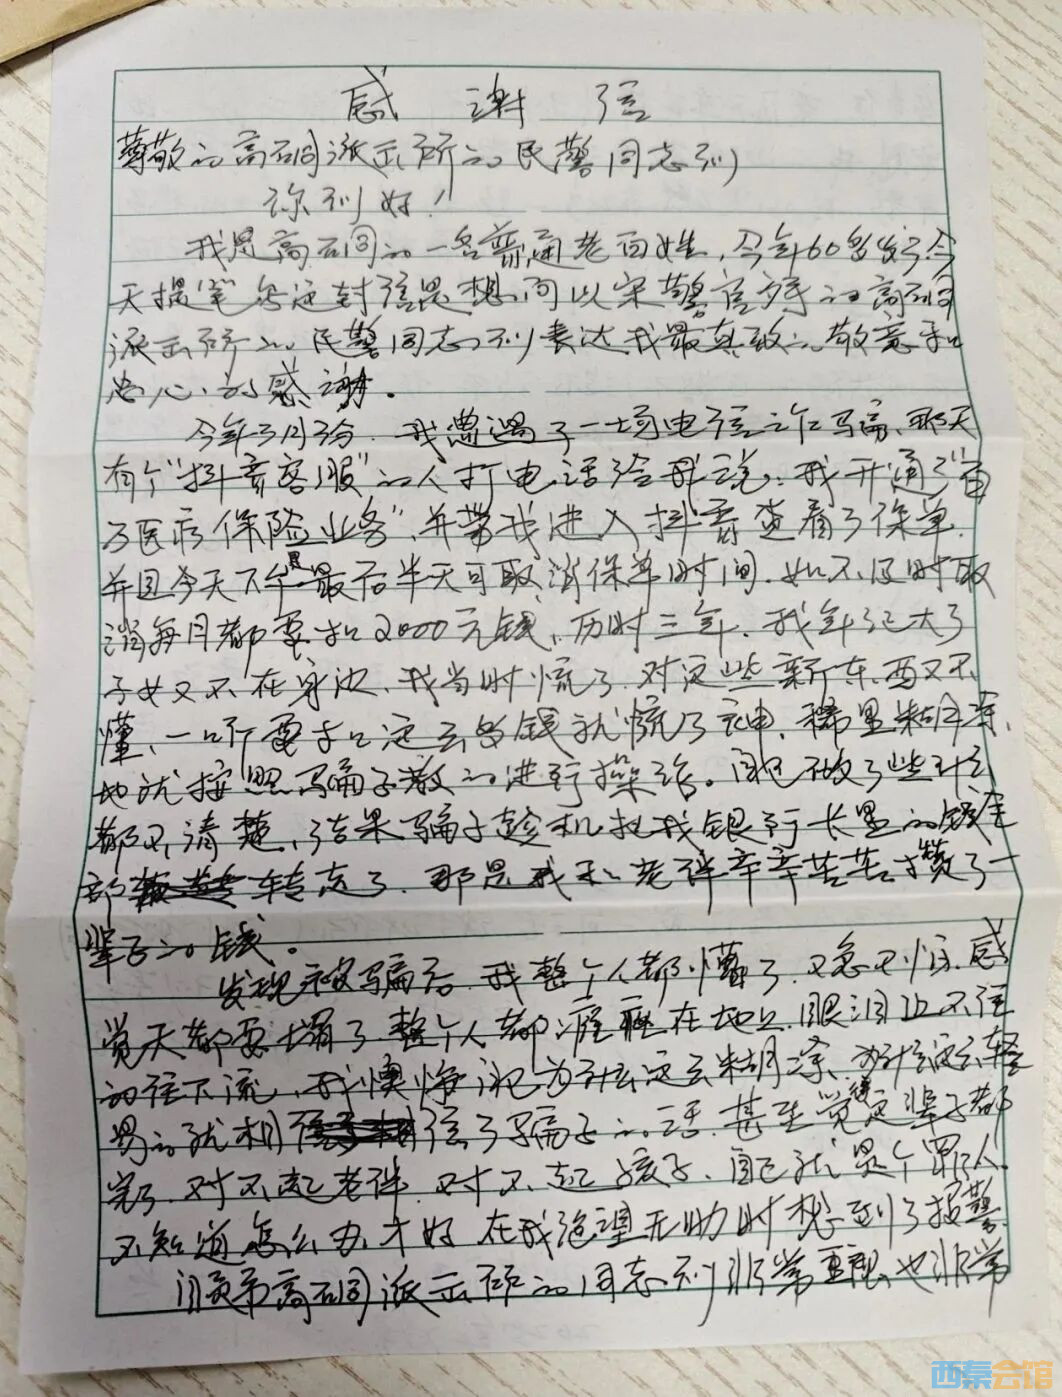 感谢信
尊敬的高石同派出所的民警同志们
你们好!
我是高石同的一名普通老百姓,今年60多岁了今
天提笔写这封信是想向以宋警官等的高石同
派出所的民警同志们表达我最真致的敬意和
忠心的感谢。
今年3月3份,我遭遇了一场电信诈骗,那天
有个"抖音客服"的人打电话给我说:我开通了"百
万医疗保险业务",并带我进入抖音查看了保单,
并且今天下午是最后半天可取消保单时间,如不及时取
消每月都要扣2000元钱,历时三年,我年纪大了
子女又不在身边,我当时慌了,对这些新东西又不
懂,一听要扣这么多钱就慌了神,稀里糊涂
地就按照骗子教的进行操作。自己做了些什么
都不清楚,结果骗子趁机把我银行卡里的钱全
部转走了,那是我和老伴辛辛苦苦攒了一
辈子的钱。
发现被骗后,我整个人都懵了,又急又怕,感
觉天都要塌了整个人都瘫在地上,眼泪止不住
的往下流,我懊悔为什么这么糊涂,为什么这么轻
易的就相信了骗子的话,甚至觉得这辈子都
完了,对不起老伴,对不起孩子,自己就是个罪人,
不知道怎么办才好,在我绝望无助时想到了报警,
高石同派出所的同志们非常重视,也非常
西秦会馆